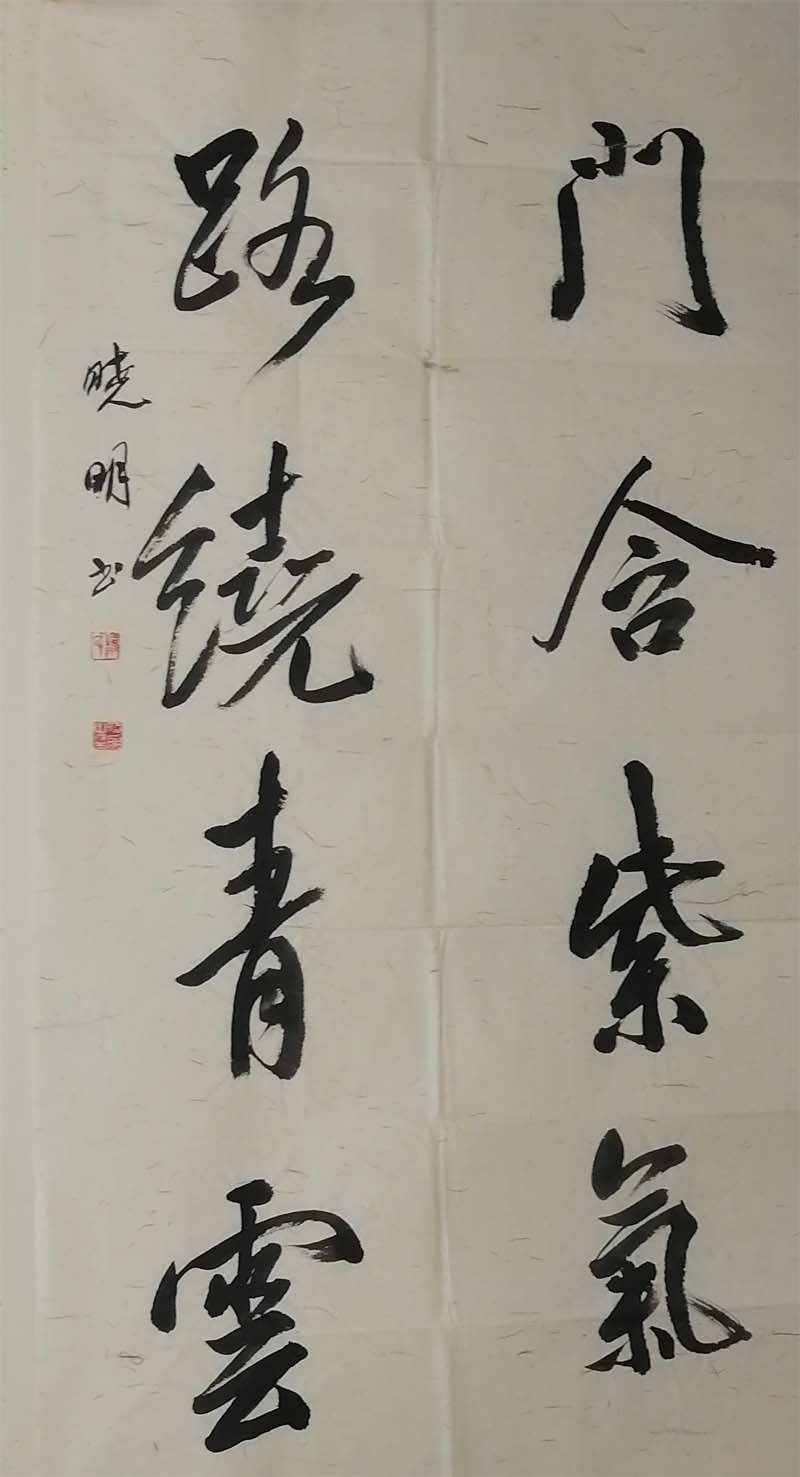 門含紫氣
路繞青雲
晓明书